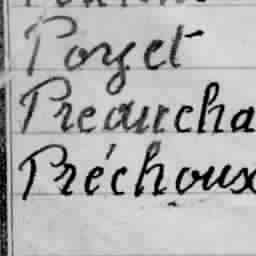 Porzet
Preaucha
Préchoux